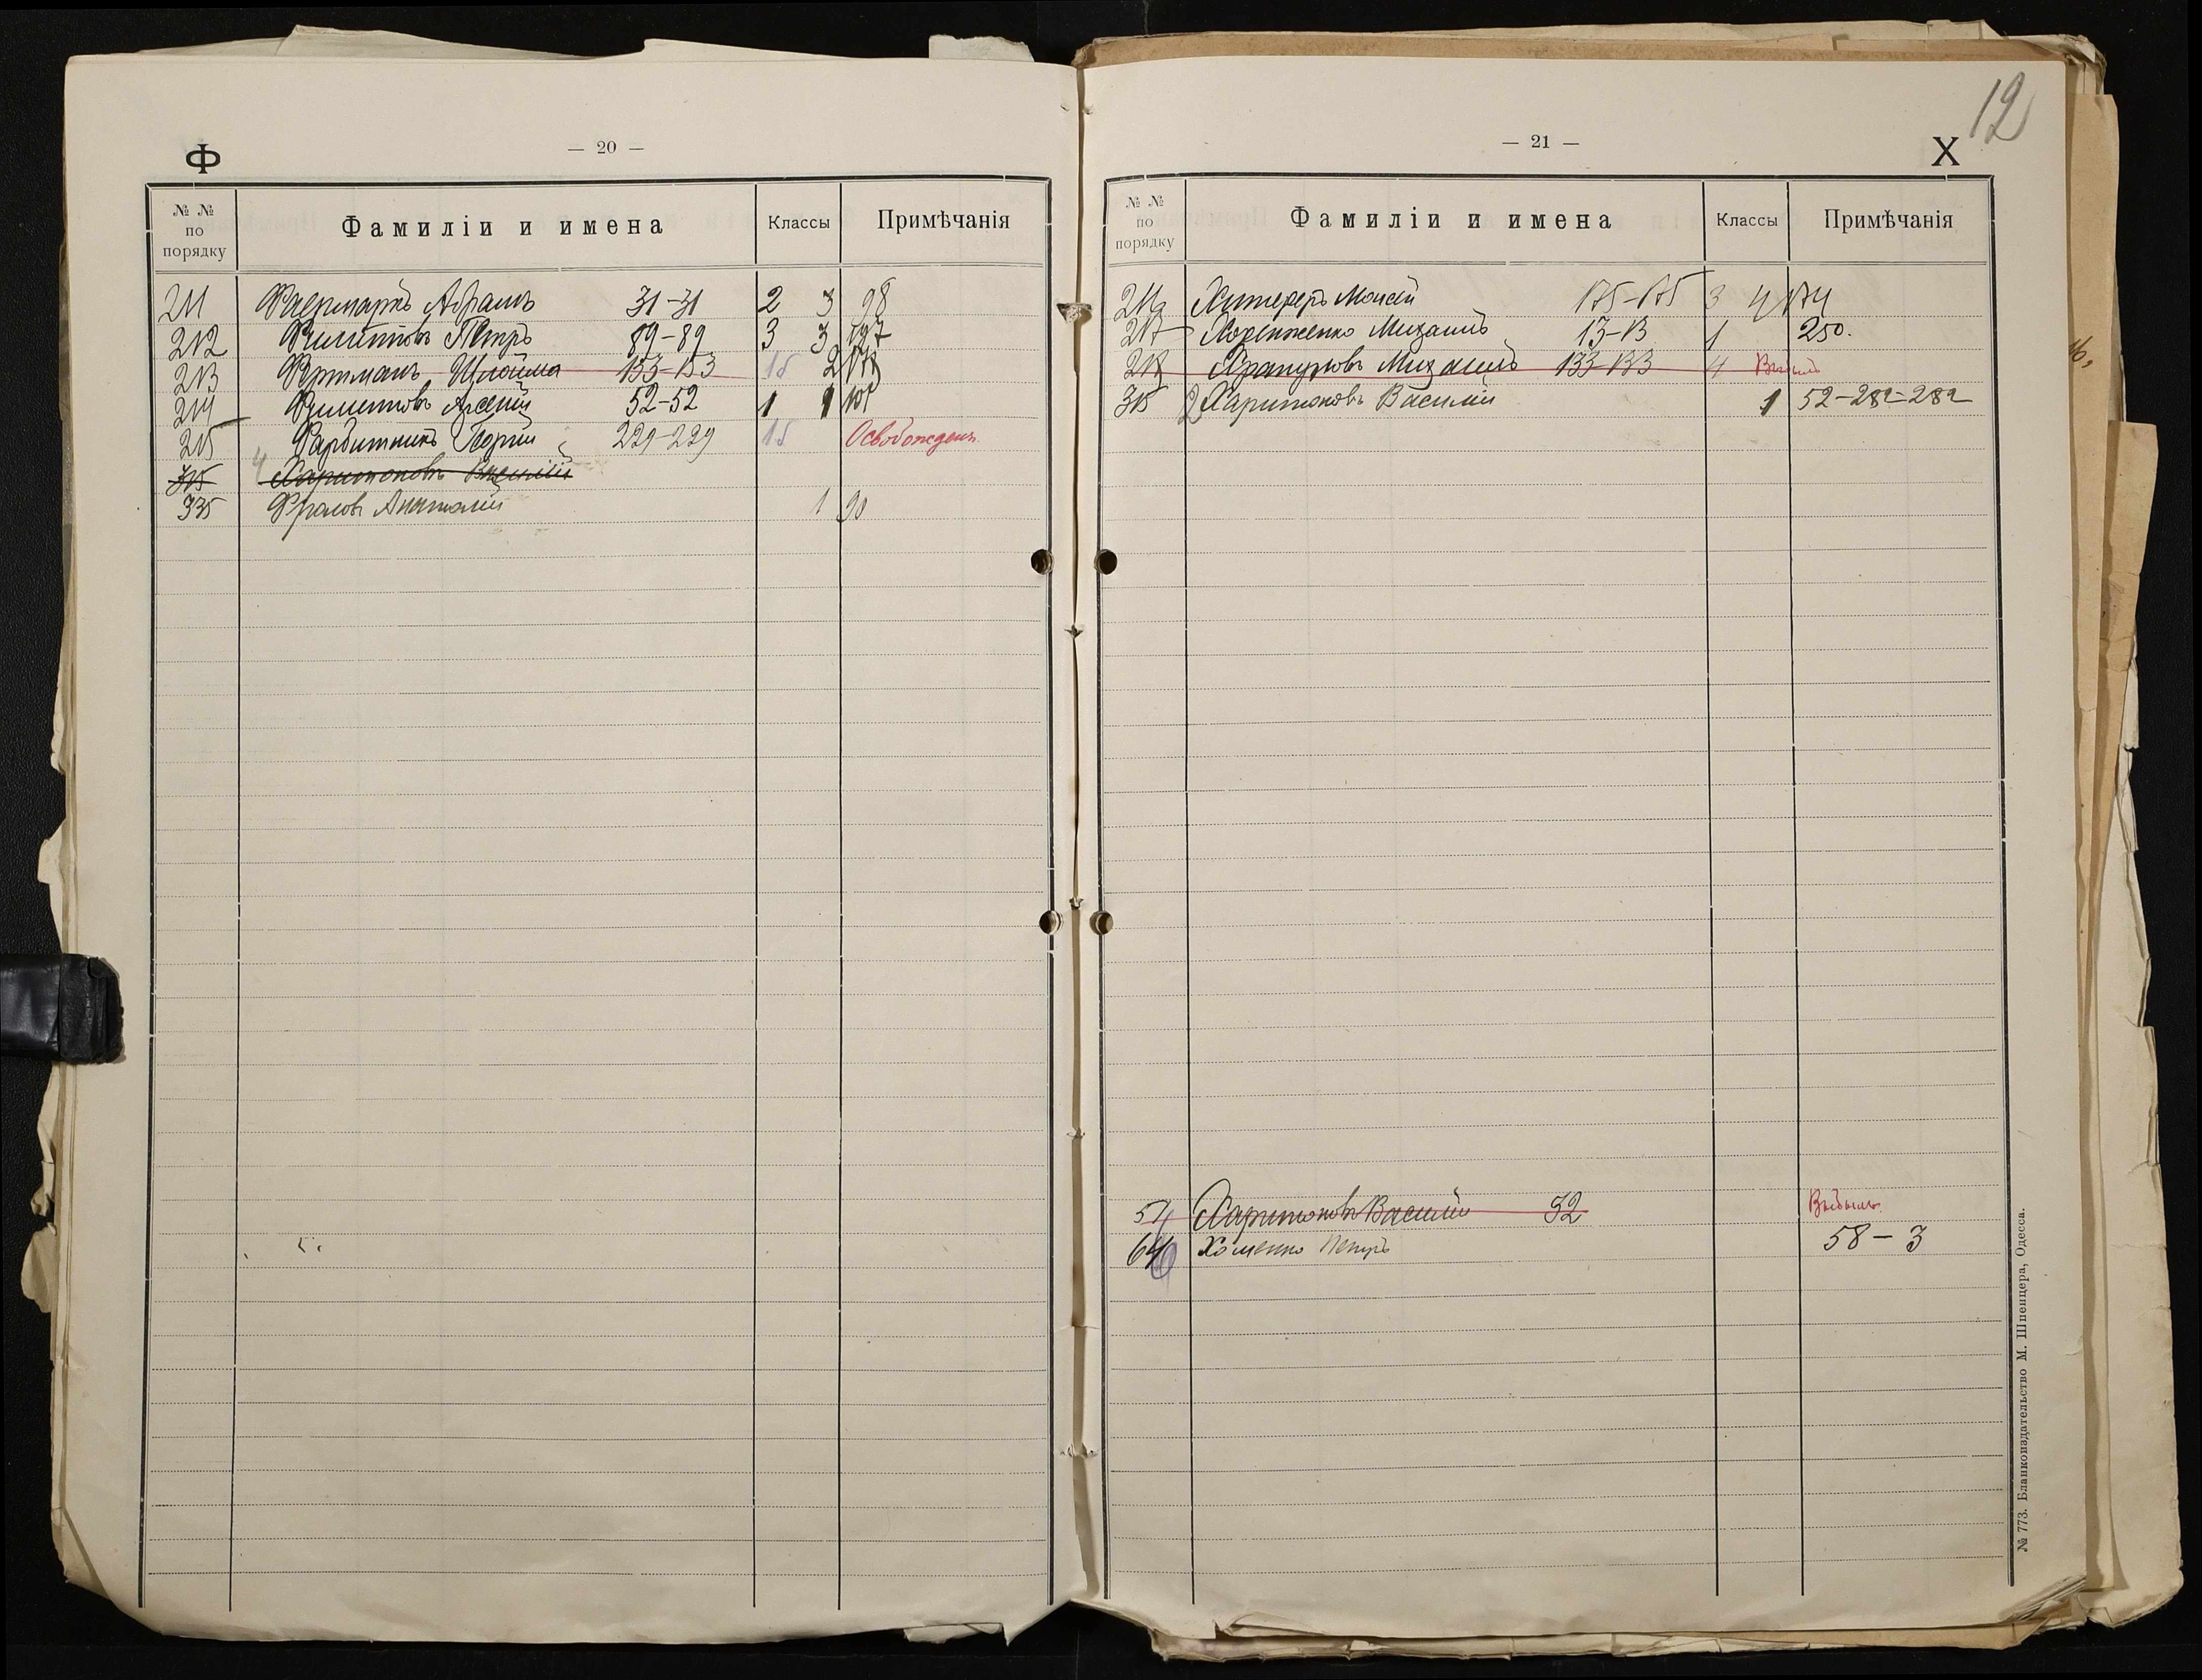 12
Ф
— 20 —
№ № по порядку Фамиліи и имена Классы Примѣчанія
211 Фаермаркъ Абрамъ 31-31 2 3 98
212 Филиповъ Петръ 89-89 3 3 197
213 Фртманъ Шлойма 153-153 15
214 Филиповъ Арсеній 52-52 1 1 101
215 Георгій 229-229 15 Освобожденъ.
315 Харитоновъ Василій
335 Фролов Анатолій 1 90
— 21 —
Х
№ № по порядку Фамиліи и имена Классы Примѣчанія
216 Моисей 175-175 3 4 174
217 Михаилъ 13-13 1 250.
218 Михаилъ 133-133 4 Выбылъ
315 Харитоновъ Василій 1 52-282-282
57 Харитоновъ Василій 32 Выбылъ
64 Хоменко Петръ 58 - 3
№ 773. Бланкоиздательство М. Шпенцера, Одесса.